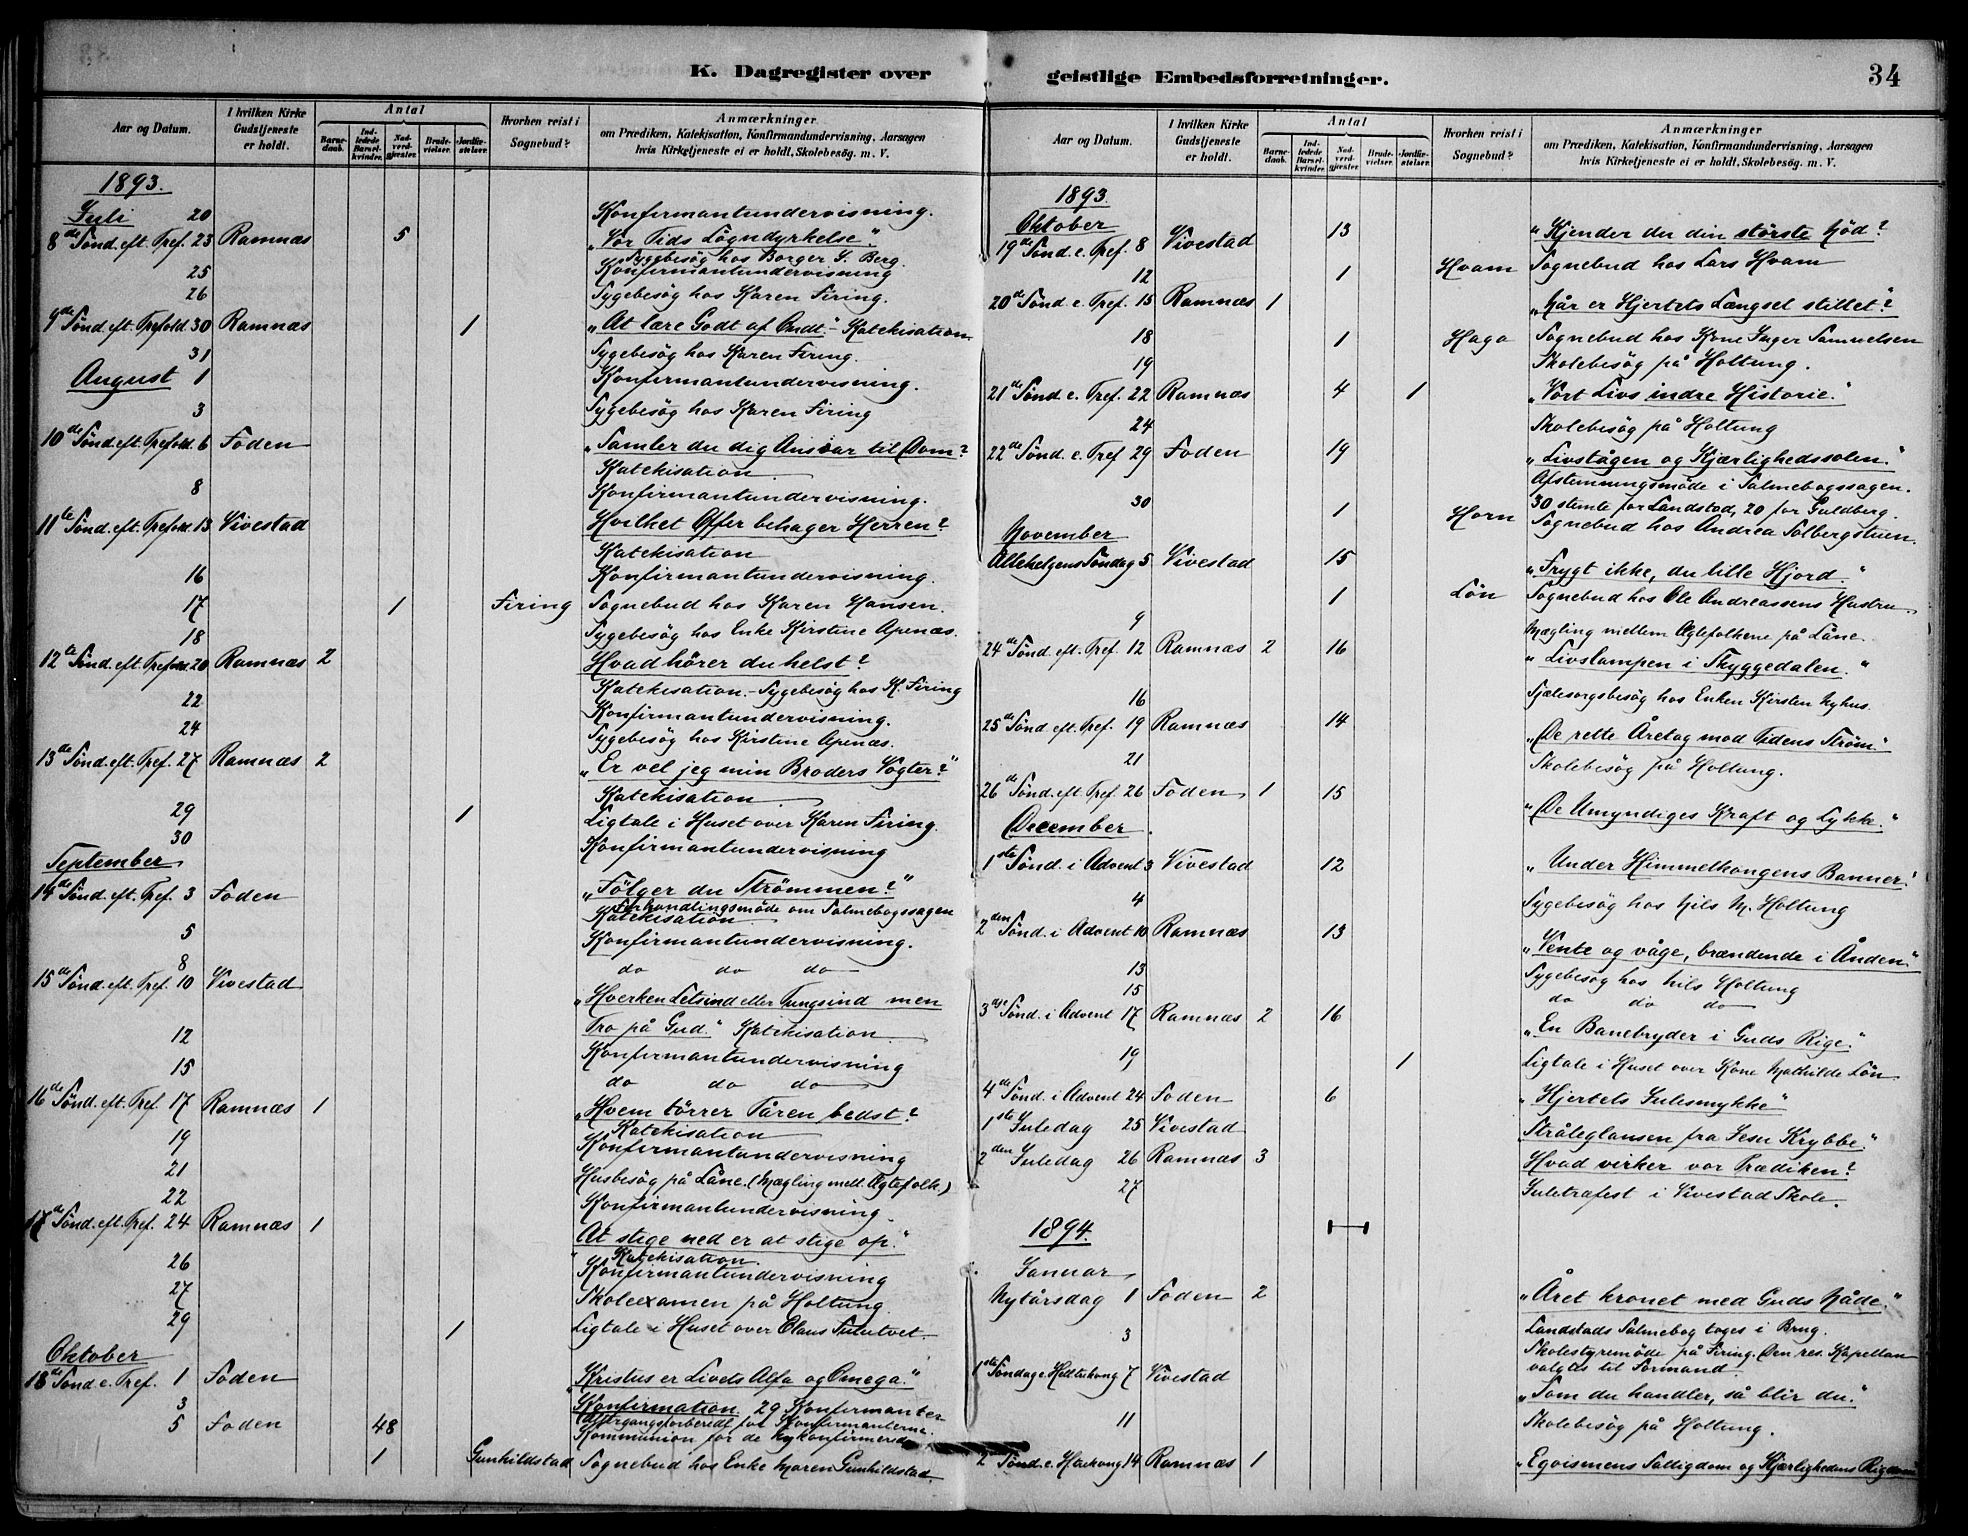 K. Dagregister over geistlige Embedsforretninger.
34
Aar og Datum. I hvilken Kirke Gudstjeneste er holdt. Antal Barnedaab. Indledede Barselkvinder. Nadverdgjæster. Brudevielser. Jordfæstelser. Hvorhen reist i Sognebud? Anmærkninger om Prædiken, Katekisation, Konfirmandundervisning, Aarsagen hvis Kirketjeneste ei er holdt, Skolebesøg. m. V.
1893.
Juli 20 Konfirmantundervisning.
8de Sönd. eft. Tref. 23 Ramnæs 5 „Vor Tids Lögndyrkelse."
Sygebesög hos Borger S. Berg.
25 Konfirmantundervisning
26 Sygebesög hos Karen Firing.
9de Sönd. eft. Trefold. 30 Ramnæs 1 „At lære Godt af Ondt." - Katekisation
31 Sygebesög hos Karen Firing.
August 1 Konfirmantundervisning.
3 Sygebesög hos Karen Firing
10de Sönd. eft. Trefold. 6 Foden „Samler du dig Ansvar til Dom?
Katekisation
8 Konfirmantundervisning.
11te Sönd. eft. Trefold. 13 Vivestad Hvilket Offer behager Herren?
Katekisation
16 Konfirmantundervisning.
17 1 Firing Sognebud hos Karen Hansen.
18 Sygebesög hos Enke Kirstine Apenæs.
12te Sönd. eft. Trefold. 20 Ramnæs 2 Hvad hörer du helst?
Katekisation. - Sygebesög hos K. Firing
22 Konfirmantundervisning.
24 Sygebesög hos Kirstine Apenæs.
13de Sönd. eft. Tref. 27 Ramnæs 2 „Er vel jeg min Broders Vogter?"
Katekisation
29 1 Ligtale i Huset over Karen Firing.
30 Konfirmantundervisning
September
14de Sönd. eft. Tref. 3 Foden „Fölger du Strömmen?"
Forhandlingsmöde om Salmebogssagen
Katekisation
5 Konfirmantundervisning.
8 do do do
15de Sönd. eft. Tref. 10 Vivestad „Hverken Letsind eller Tungsind men
Tro på Gud." Katekisation.
12 Konfirmantundervisning
15 do do do
16de Sönd. eft. Tref. 17 Ramnæs 1 „Hvem törrer Tåren bedst?
Katekisation
19 Konfirmantundervisning
21 Husbesög på Låne. (Mægling mell. Ægtefolk)
22 Konfirmantundervisning.
17de Sönd. eft. Tref. 24 Ramnæs 1 At stige ned er at stige op."
Katekisation.
26 Konfirmantundervisning
27 Skoleexamen på Holtung.
29 1 Ligtale i Huset over Claus Sulutvet.
Oktober
18de Sönd e. Tref. 1 Foden „Kristus er Livets Alfa og Omega."
3 Konfirmation. 29 Konfirmanter
5 Foden 48 Kommunion for de nykonfirmerede
1 Gunhildstad Sognebud hos Enke Maren Gunhildstad.
Aar og Datum. I hvilken Kirke Gudstjeneste er holdt. Antal Barnedaab. Indledede Barselkvinder. Nadverdgjæster. Brudevielser. Jordfæstelser. Hvorhen reist i Sognebud? Anmærkninger om Prædiken, Katekisation, Konfirmandundervisning, Aarsagen hvis Kirketjeneste ei er holdt, Skolebesøg. m. V.
1893.
Oktober
19de Sönd e. Tref. 8 Vivestad 13 „Kjender du din störste Nöd?
12 1 Hvam Sognebud hos Lars Hvam
20de Sönd e. Tref. 15 Ramnæs 1 „Når er Hjertets Længsel stillet"?
18 1 Haga Sognebud hos Kone Inger Samuelsen
19 Skolebesög på Holtung.
21de Sönd e. Tref. 22 Ramnæs 4 1 „Vort Livs indre Historie."
24 Skolebesög på Holtung
22de Sönd e. Tref 29 Foden 19 „Livstågen og Kjærlighedssolen."
Afstemningsmöde i Salmebogssagen.
30 stemte for Landstad, 20 for Guldberg.
30 1 Horn Sognebud hos Andrea Solbergstuen.
November
Allehelgens Söndag 5 Vivestad 15 „Frygt ikke, du lille Hjord."
1 Lön Sognebud hos Ole Andreassens Hustru
9 Mægling mellem Ægtefolkene på Låne.
24de Sönd. eft. Tref 12 Ramnæs 2 16 „Livslampen i Skyggedalen."
16 Sjælesorgsbesög hos Enken Kirsten Nyhus.
25de Sönd eft. Tref. 19 Ramnæs 14 „De rette Åretag mod Tidens Ström."
21 Skolebesög på Holtung.
26de Sönd. eft. Tref. 26 Foden 1 15 „De Umyndiges Kraft og Lykke."
December
1ste Sönd. i Advent 3 Vivestad 12 „Under Himmelkongens Banner."
4 Sygebesög hos Nils N. Holtung
2den Sönd. i Advent 10 Ramnæs 13 „Vente og våge, brændende i Ånden."
13 Sygebesög hos Nils Holtung
15 do do do
3dje Sönd. i Advent 17 Ramnæs 2 16 „En Banebryder i Guds Rige."
19 1 Ligtale i Huset over Kone Mathilde Lön.
4de Sönd. i Advent 24 Foden 6 „Hjertets Julesmykke"
1ste Juledag 25 Vivestad Stråleglansen fra Jesu Krybbe."
2den Juledag 26 Ramnæs 3 Hvad virker vor Prædiken?
27 Juletræfest i Vivestad Skole.
1894.
Januar
Nytårsdag 1 Foden 2 „Året kronet med Guds Nåde."
Landstads Salmebog toges i Brug.
3 Skolestyremöde på Firing. Den res. Kapellan
valgtes til Formand.
1ste Söndag e. Helltrekong 7 Vivestad „Som du handler, så blir du."
11 Skolebesög på Holtung.
2 Sönd. e. 14 Ramnæs 1 „Egoismens Fattigdom og Kjærlighedens Rigdom